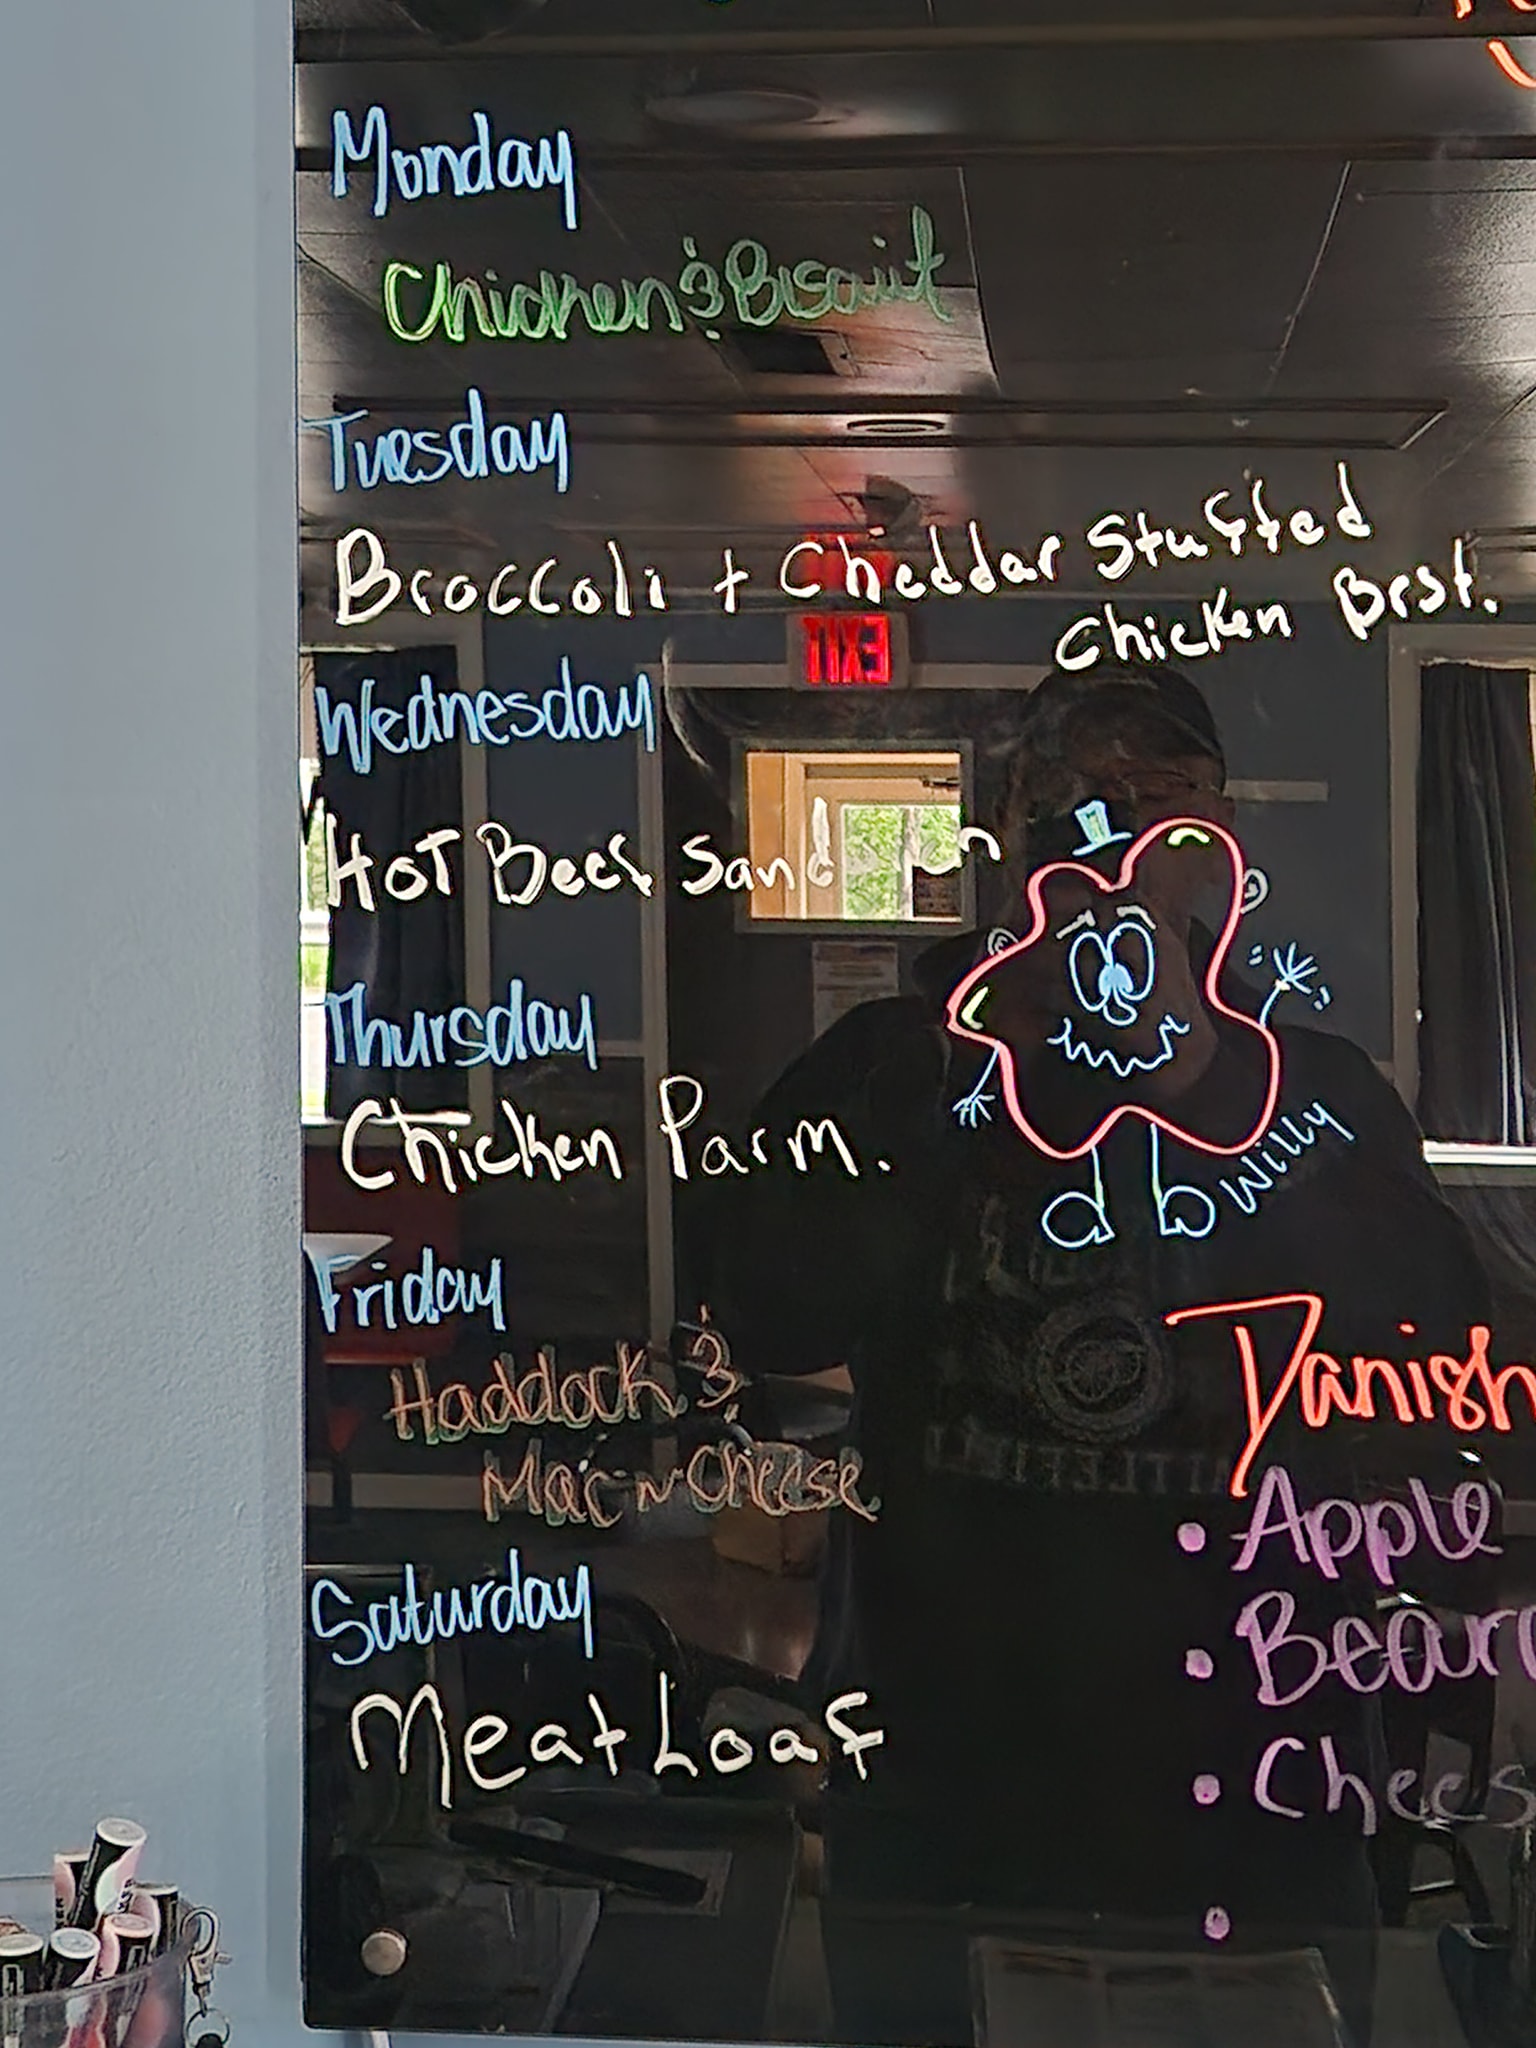 Monday
Chicken & Biscuit
Tuesday
Broccoli + Cheddar Stuffed
Chicken Brst.
EXIT
Wednesday
HOT Beef
Thursday
Chicken Parm.
Willy
Friday
Haddock &
Mac n Cheese
Saturday
Meat Loaf
Danish
• Apple
• Bear
• Chees
•